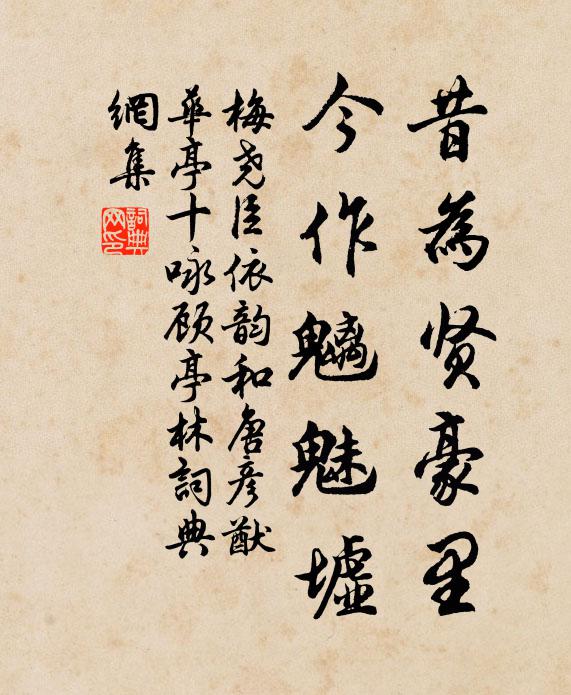 昔為贤豪里
今作魑魅墟
梅尧臣依韵和唐彦猷
華亭十咏顾亭林詞典
網集
詞典网印